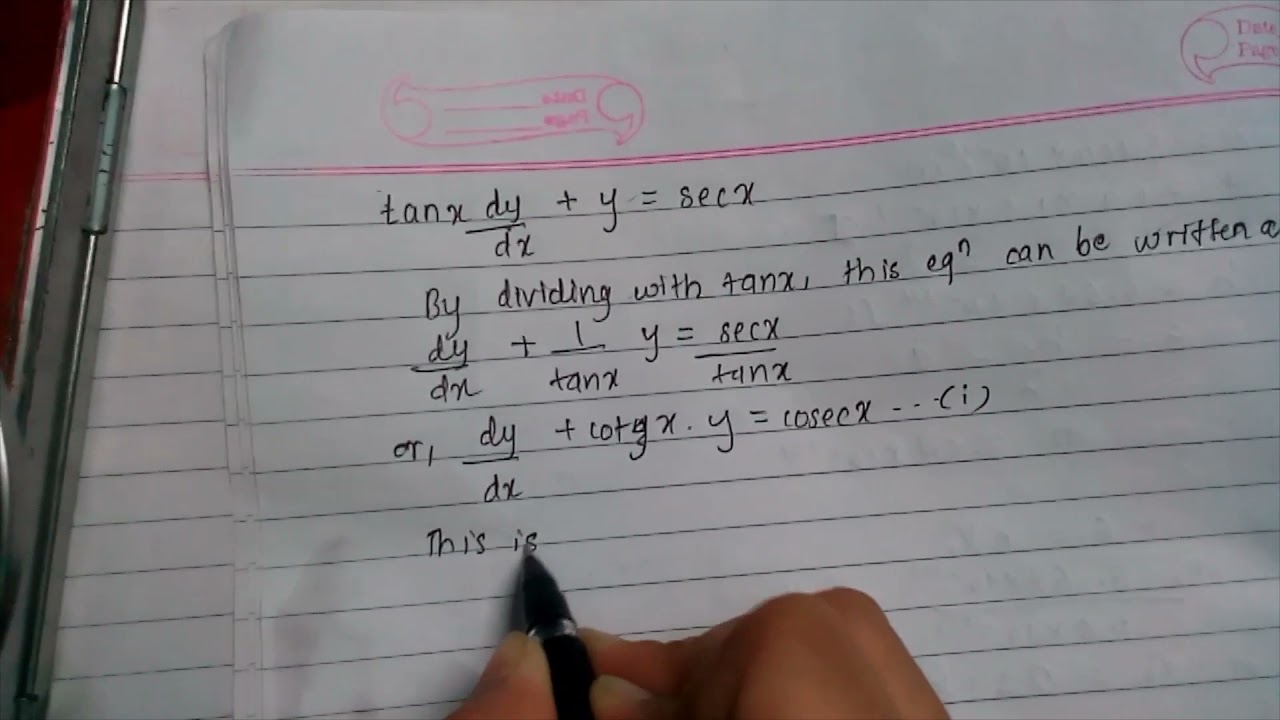 Date
Page
Date
Page
tanx dy/dx + y = secx
By dividing with tanx, this eqⁿ can be written a
dy/dx + 1/tanx y = secx/tanx
or, dy/dx + cotgx . y = cosecx ... (i)
This is